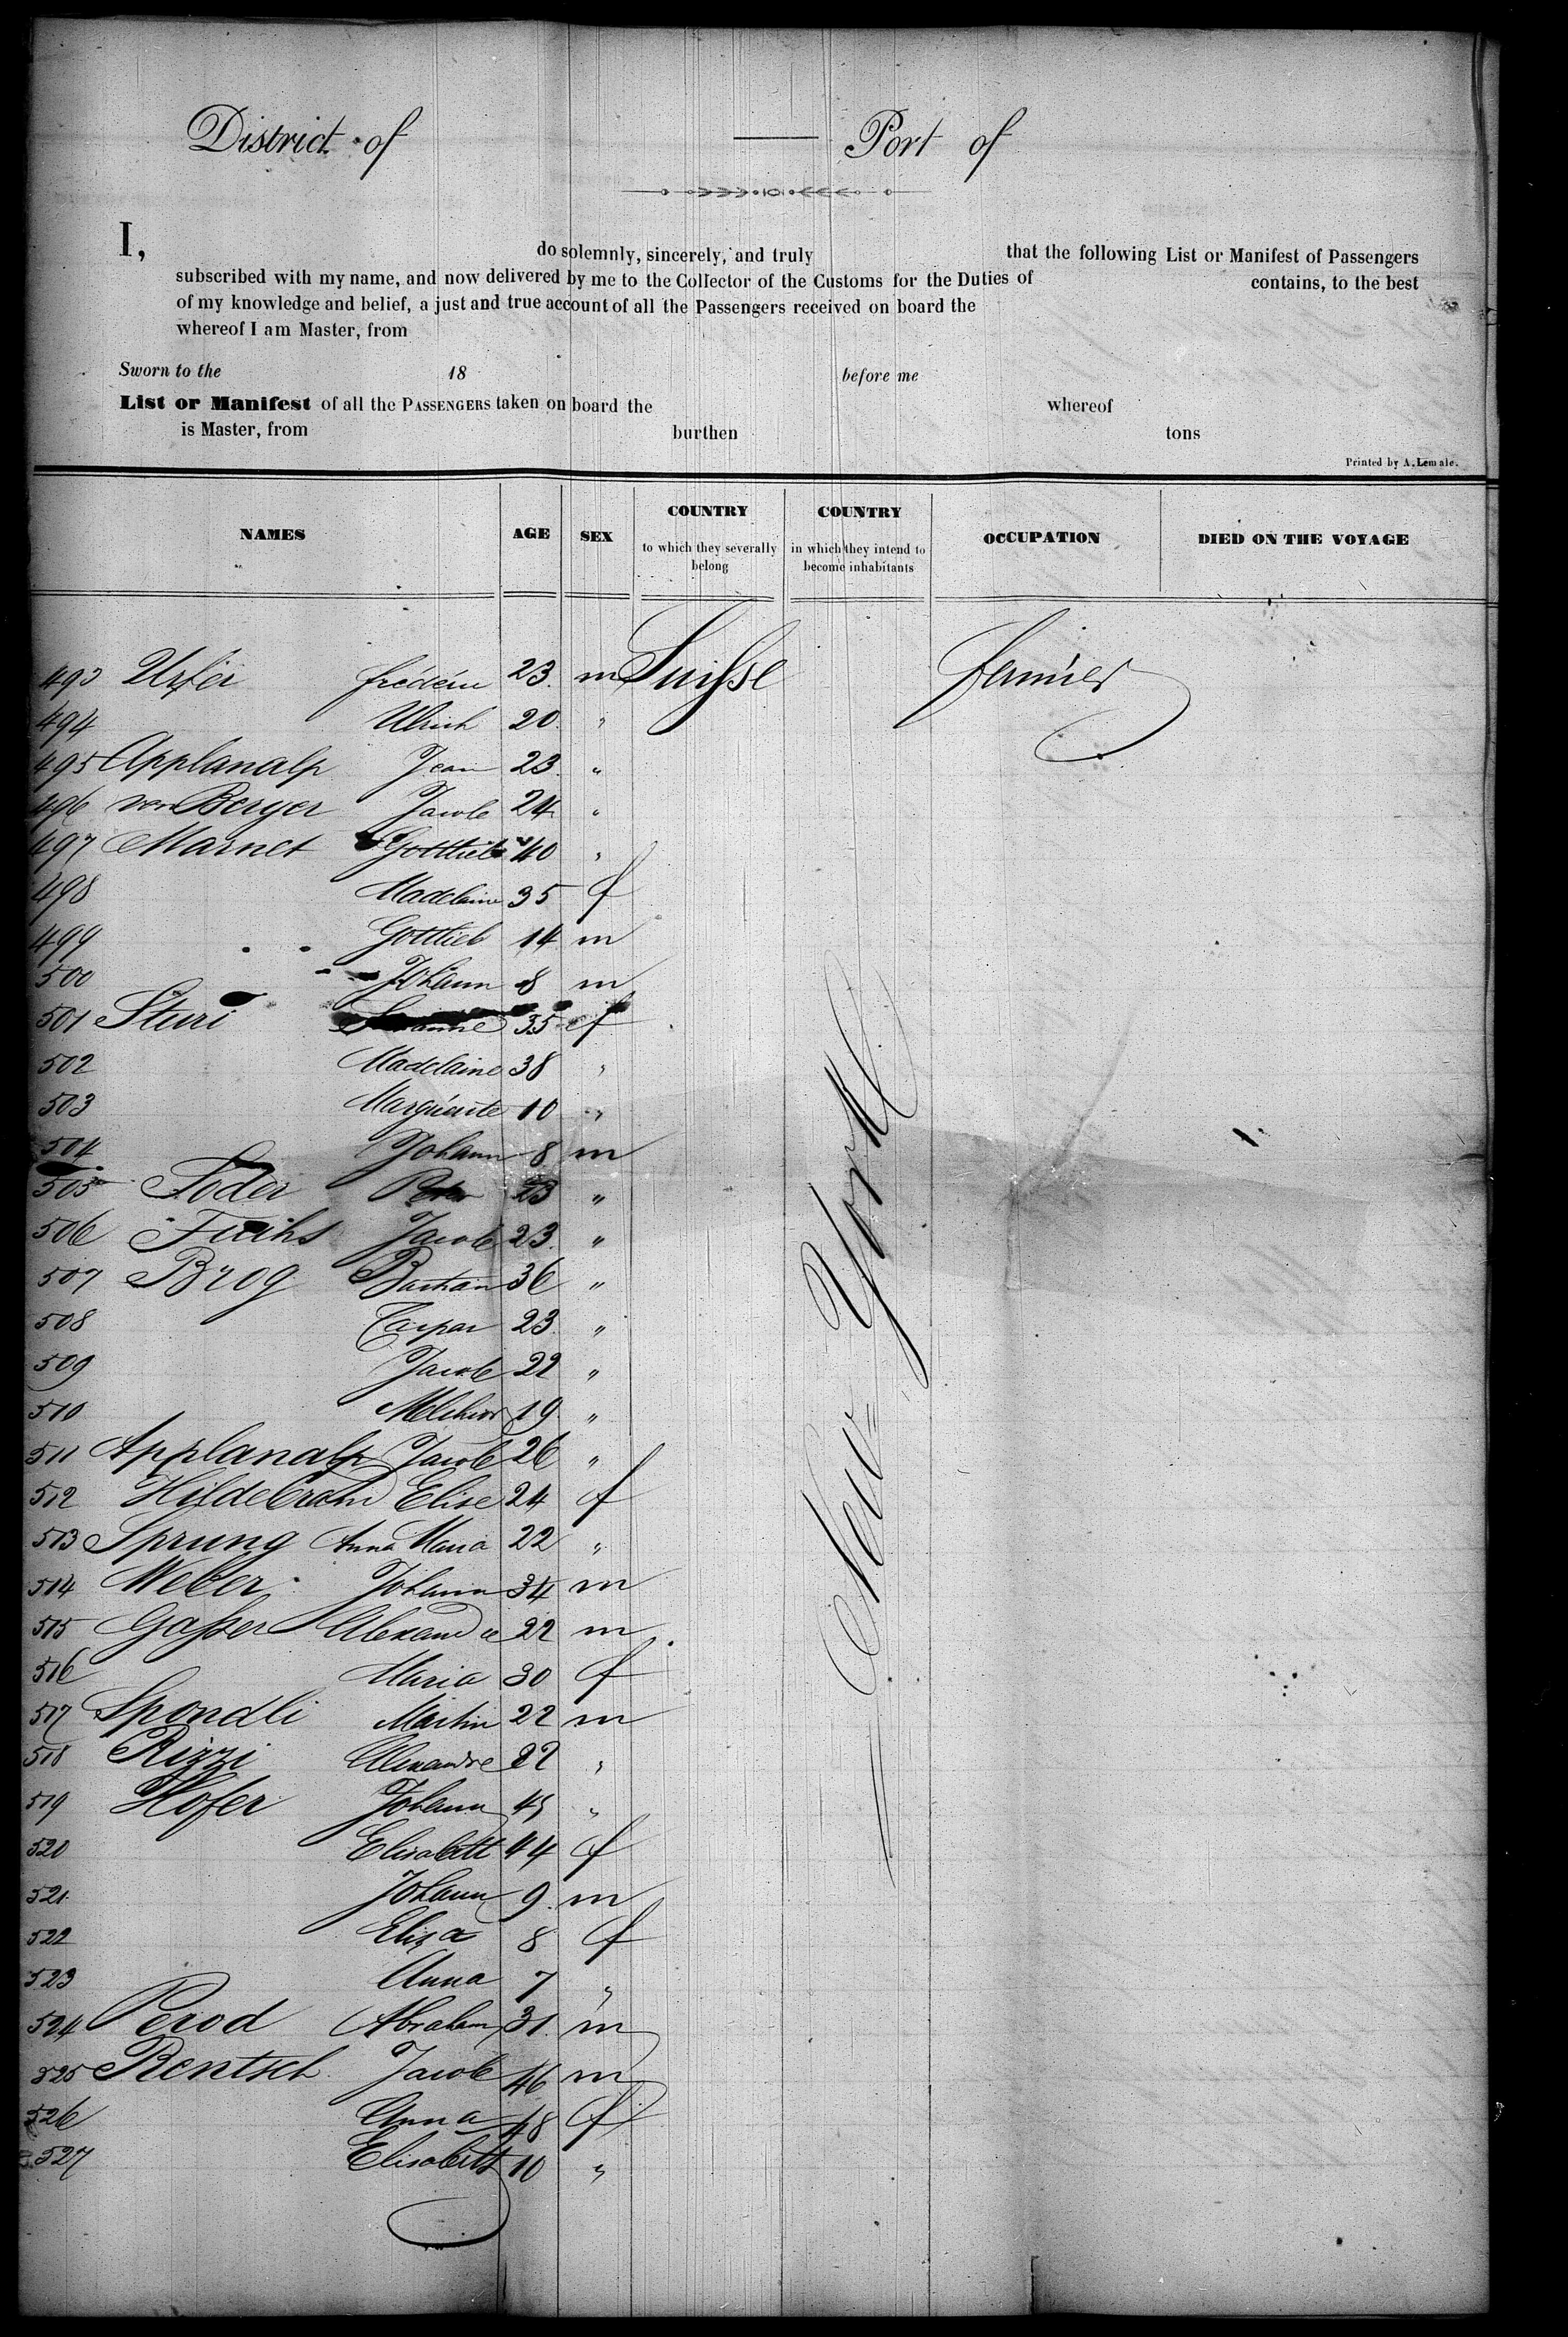 District of — Port of
I, do solemnly, sincerely, and truly that the following List or Manifest of Passengers
subscribed with my name, and now delivered by me to the Collector of the Customs for the Duties of contains, to the best
of my knowledge and belief, a just and true account of all the Passengers received on board the
whereof I am Master, from
Sworn to the 18 before me
List or Manifest of all the PASSENGERS taken on board the whereof
is Master, from burthen tons
Printed by A. Lemale.
NAMES AGE SEX COUNTRY to which they severally belong COUNTRY in which they intend to become inhabitants OCCUPATION DIED ON THE VOYAGE
493 Urfer frédéric 23 m Suisse fermier
494 Ulrich 20 "
495 Applanalp Jean 23 "
496 von Berger Jacob 24 "
497 Marnet Gottlieb 40 "
498 Madelaine 35 f
499 Gottlieb 14 m
500 Johann 8 m
501 Sturi 35 f
502 Madelaine 38 "
503 Marguerite 10 "
504 Johann 8 m
505 Soder Peter 23 "
506 Fuchs Jacob 23 "
507 Brog Bastian 36 "
508 Caspar 23 "
509 Jacob 22 "
510 Melchior 19 "
511 Applanalp Jacob 26 "
512 Hildebrand Elise 24 f
513 Sprung Anna Maria 22 "
514 Weber Johann 34 m
515 Gasser Alexandre 22 m
516 Maria 30 f
517 Spondli Martin 22 m
518 Rizzi Alexandre 22 "
519 Hofer Johann 45 "
520 Elisabett 44 f
521 Johann 9 m
522 Elisa 8 f
523 Anna 7 "
524 Perod Abraham 31 m
525 Rentsch Jacob 46 m
526 Anna 48 f
527 Elisabett 10 "
New York